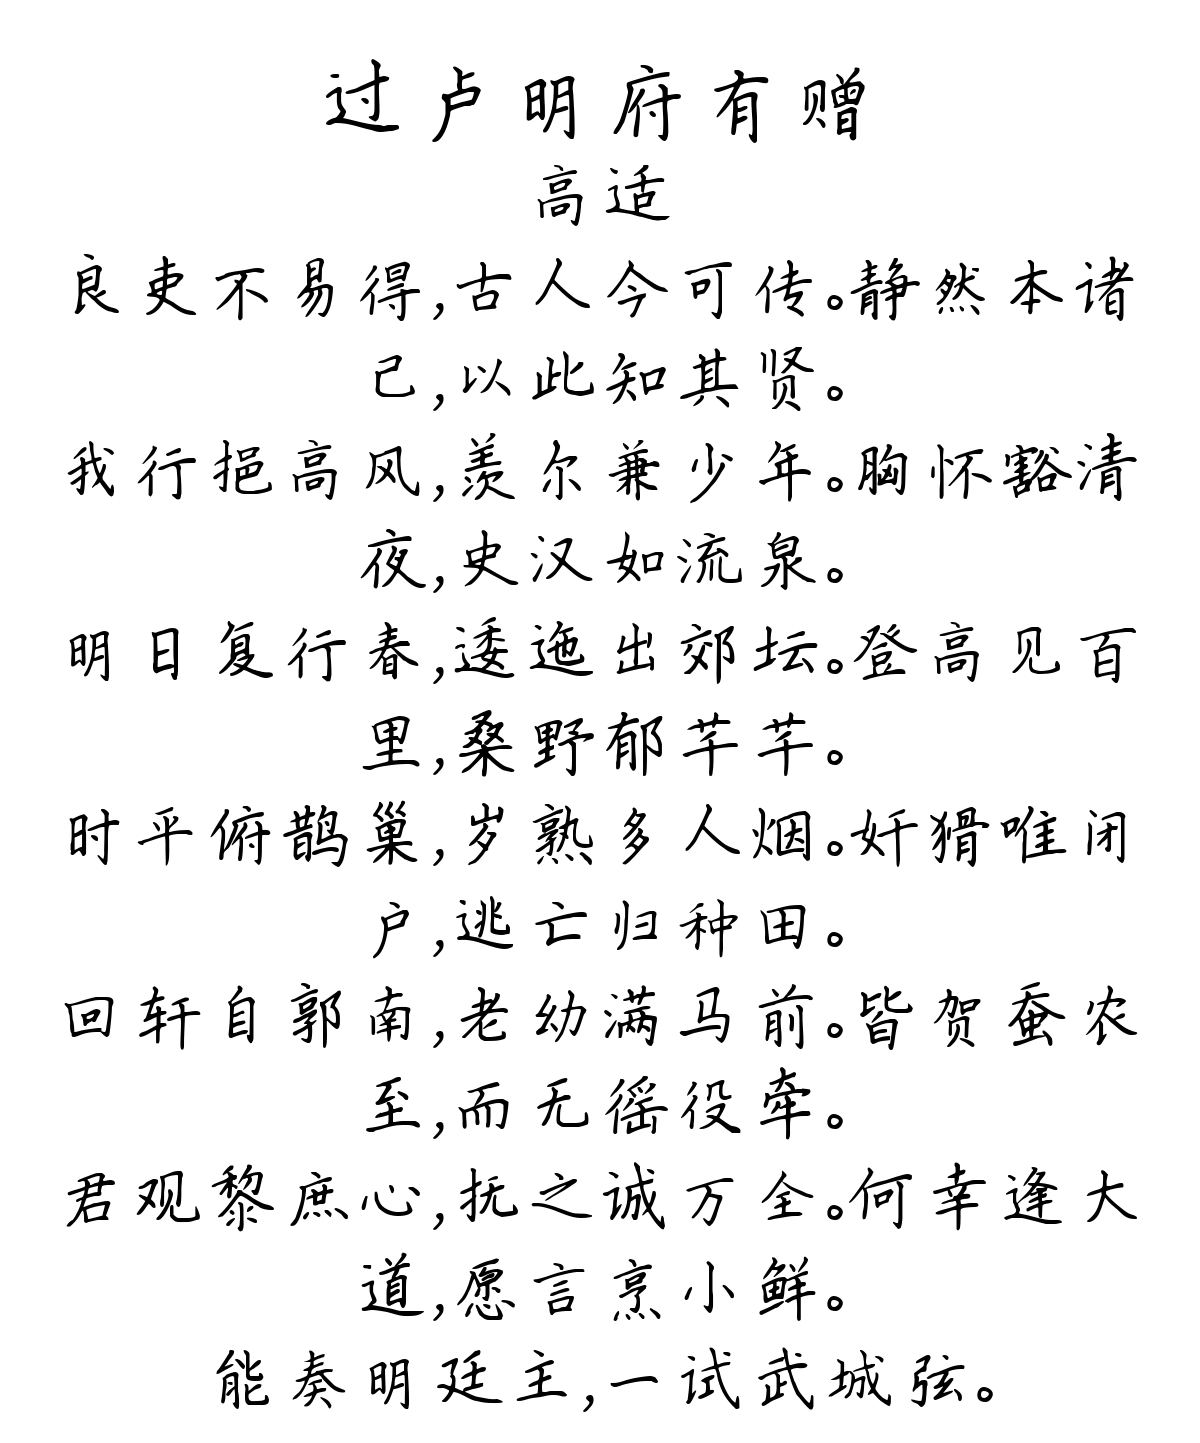 过卢明府有赠
高适
良吏不易得,古人今可传。静然本诸
己,以此知其贤。
我行挹高风,羡尔兼少年。胸怀豁清
夜,史汉如流泉。
明日复行春,逶迤出郊坛。登高见百
里,桑野郁芊芊。
时平俯鹊巢,岁熟多人烟。奸猾唯闭
户,逃亡归种田。
回轩自郭南,老幼满马前。皆贺蚕农
至,而无徭役牵。
君观黎庶心,抚之诚万全。何幸逢大
道,愿言烹小鲜。
能奏明廷主,一试武城弦。